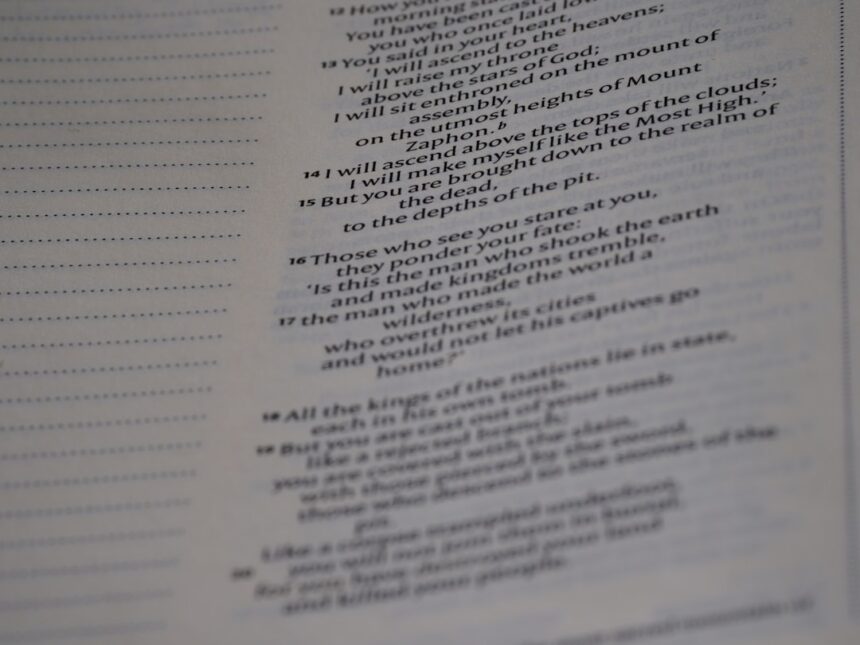 12 How you
morning sta
You have been cast
you who once laid lo
13 You said in your heart,
‘I will ascend to the heavens;
I will raise my throne
above the stars of God;
I will sit enthroned on the mount of
assembly,
on the utmost heights of Mount
Zaphon.b
14 I will ascend above the tops of the clouds;
I will make myself like the Most High.’
15 But you are brought down to the realm of
the dead,
to the depths of the pit.
16 Those who see you stare at you,
they ponder your fate:
‘Is this the man who shook the earth
and made kingdoms tremble,
17 the man who made the world a
wilderness,
who overthrew its cities
and would not let his captives go
home?’
18 All the kings of the nations lie in state,
each in his own tomb.
19 But you are cast out of your tomb
like a rejected branch;
you are covered with the slain,
with those pierced by the sword,
those who descend to the stones of the
pit.
Like a corpse trampled underfoot,
20 you will not join them in burial,
for you have destroyed your land
and killed your people.